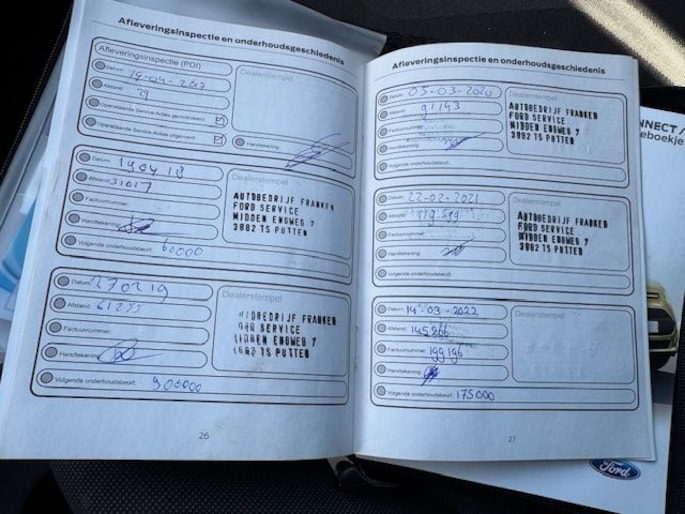 Afleveringsinspectie en onderhoudsgeschiedenis
Afleveringsinspectie (PDI)
Datum: 19-04-2017
Afstand: 29
Openstaande Service Acties gecontroleerd
Openstaande Service Acties uitgevoerd
Handtekening:
Dealerstempel
Datum: 190418
Afstand: 31017
Factuurnummer:
Handtekening:
Volgende onderhoudsbeurt: 60000
Dealerstempel
AUTOBEDRIJF FRANKEN
FORD SERVICE
MIDDEN ENGWEG 7
3882 TS PUTTEN
Datum: 270219
Afstand: 61235
Factuurnummer:
Handtekening:
Volgende onderhoudsbeurt: 900000
Dealerstempel
FRANKEN
SERVICE
ENGWEG 7
TS PUTTEN
26
Afleveringsinspectie en onderhoudsgeschiedenis
Datum: 05-03-2020
Afstand: 91143
Factuurnummer:
Handtekening:
Volgende onderhoudsbeurt:
Dealerstempel
AUTOBEDRIJF FRANKEN
FORD SERVICE
MIDDEN ENGWEG 7
3882 TS PUTTEN
Datum: 22-02-2021
Afstand:
Factuurnummer:
Handtekening:
Volgende onderhoudsbeurt:
Dealerstempel
AUTOBEDRIJF FRANKEN
FORD SERVICE
MIDDEN ENGWEG 7
3882 TS PUTTEN
Datum: 14-03-2022
Afstand: 145266
Factuurnummer: 199196
Handtekening:
Volgende onderhoudsbeurt: 175000
Dealerstempel
27
NNECT /
eboekje
Ford